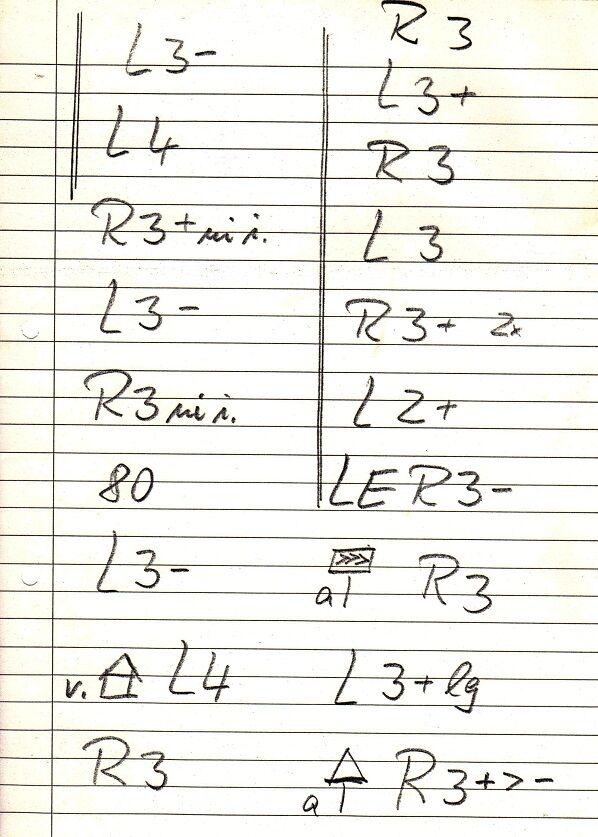 L3-
L4
R3+ni i.
L3-
R3ni i.
80
L3-
v. L4
R3
R3
L3+
R3
L3
R3+ 2x
L2+
LER3-
a >>> R3
L3+lg
a R3+>-